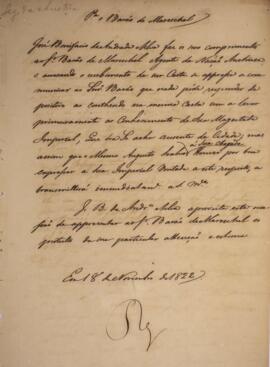 Pª o Barão de Mareschal
José Bonifacio de Andrada e Silva faz os seus comprimentos
ao Sr. Barão de Mareschal Agente da Nação Austriaca
e accusando o recebimento da sua Carta se appressa a com-
municar ao Snr Barão que nada pode responder de
positivo ao contheudo na mesma Carta sem a levar
primeiramente ao Conhecimento de Sua Magestade
Imperial, Que Se acha auzente da Cidade, mas
assim que o Mesmo Augusto Senhor Houver por bem
á Sua Chegada
expressar a Sua Imperial Vontade a este respeito, a
transmittirá immediatamente ao Sr
J. B. de Andrª e Silva aproveita esta oca
sião de appresentar ao Sr. Barão de Mareschal os
protestos da sua particular attenção e estima
Em 18 de Novembro de 1822